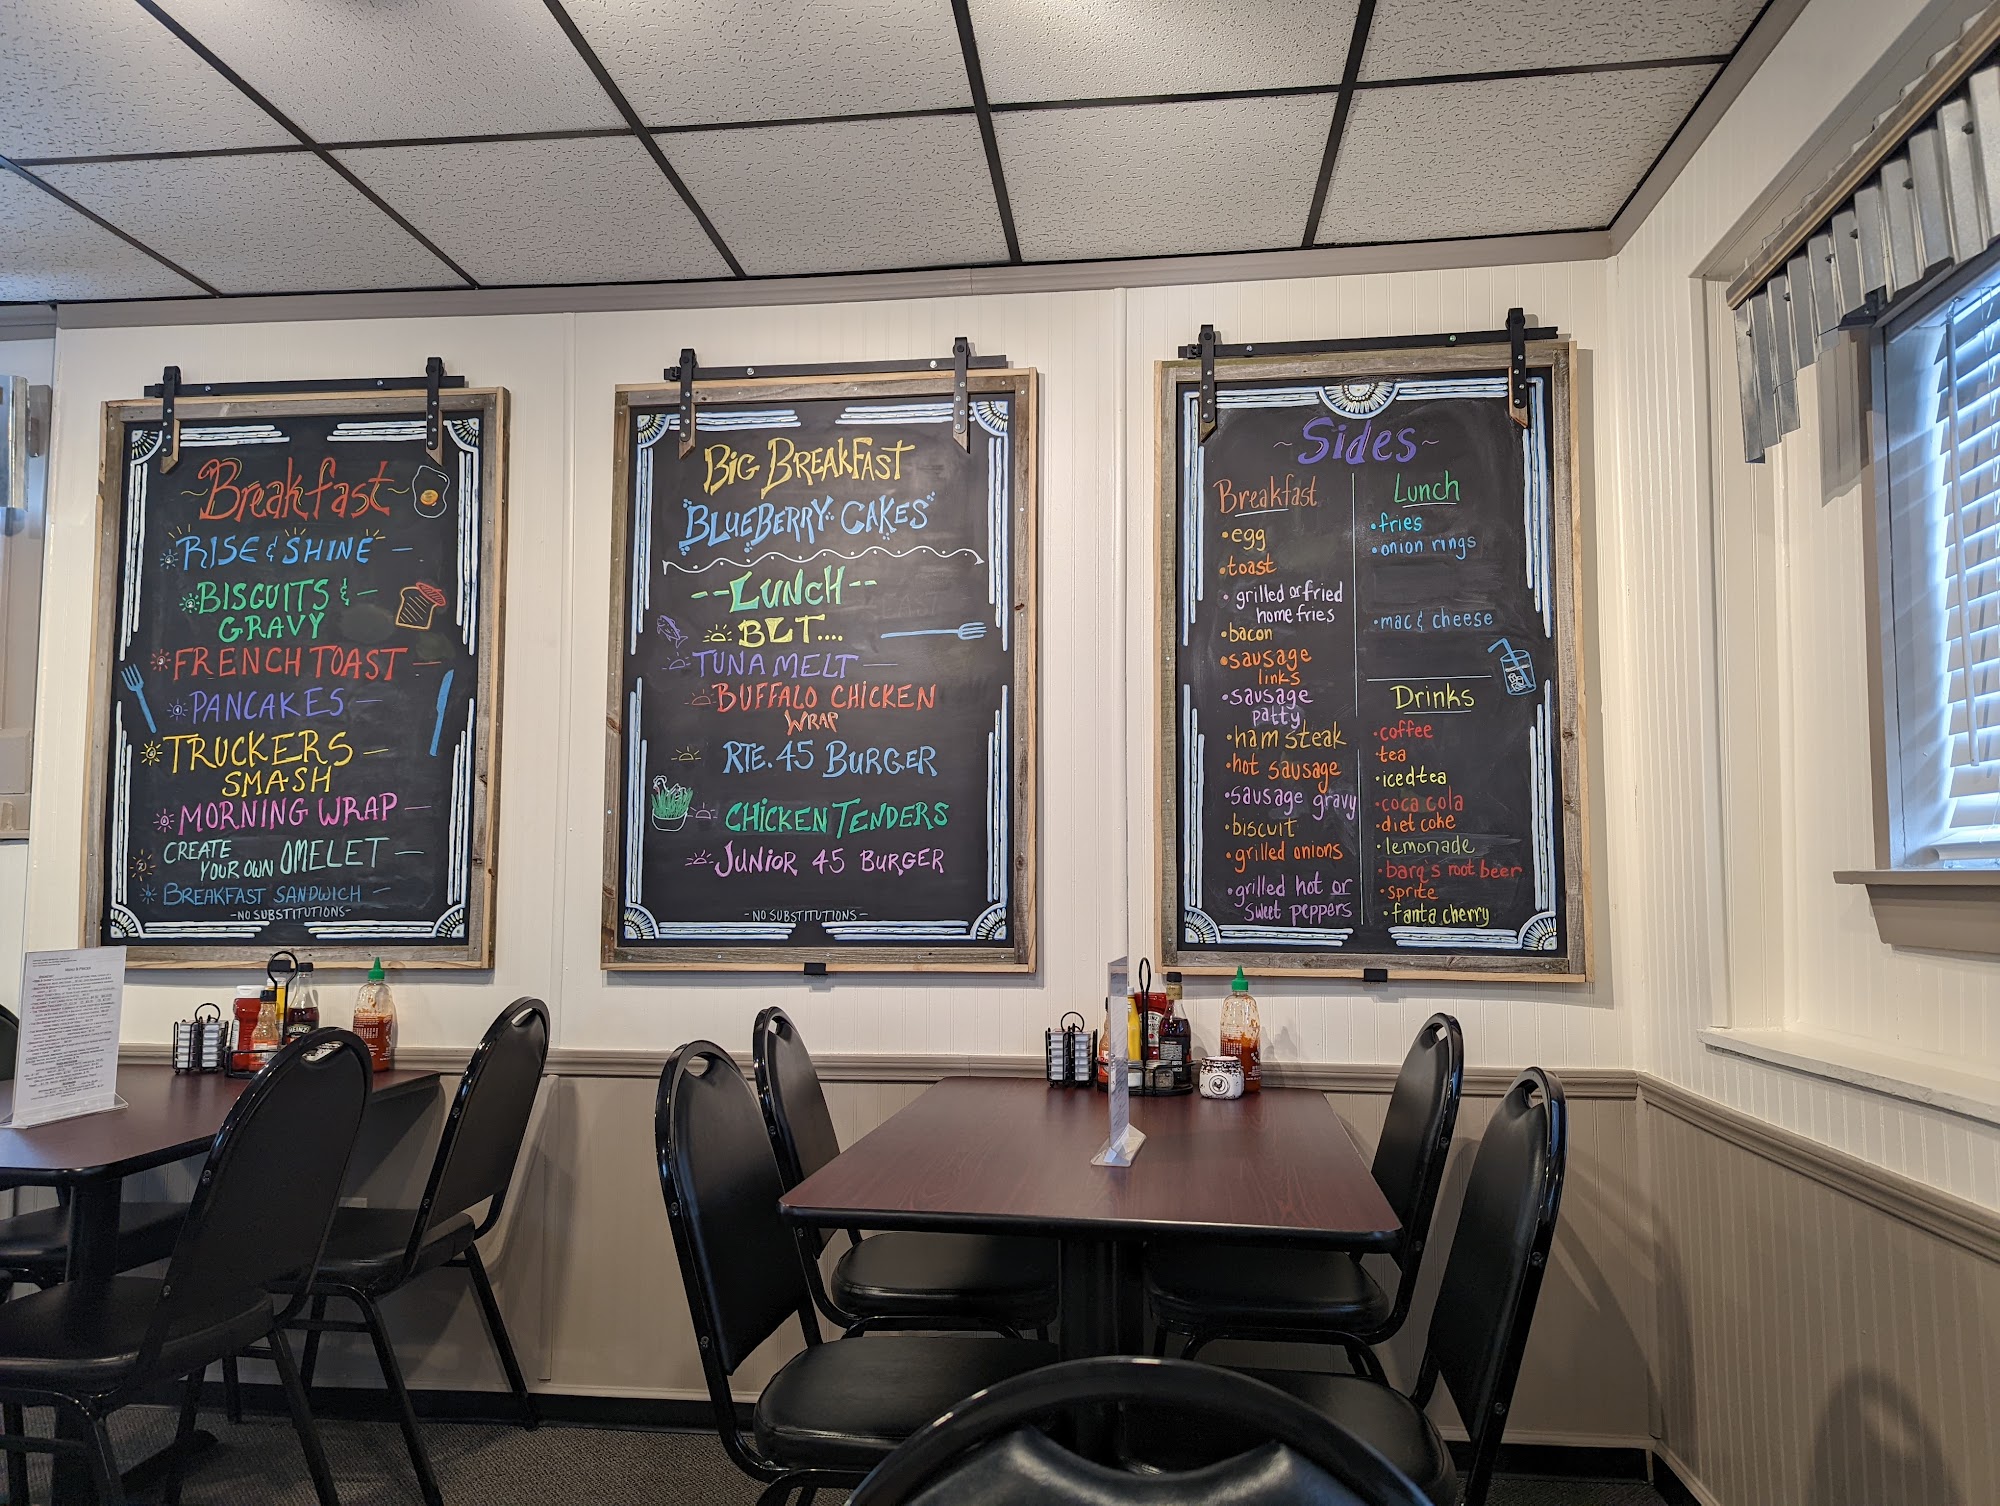 ~Breakfast~
RISE & SHINE —
BISCUITS & —
GRAVY
FRENCH TOAST —
PANCAKES —
TRUCKERS —
SMASH
MORNING WRAP —
CREATE
YOUR OWN OMELET —
BREAKFAST SANDWICH —
-NO SUBSTITUTIONS-
BIG BREAKFAST
BLUEBERRY CAKES
--LUNCH--
BLT....
TUNA MELT —
BUFFALO CHICKEN
WRAP
RTE. 45 BURGER
CHICKEN TENDERS
JUNIOR 45 BURGER
-NO SUBSTITUTIONS-
~Sides~
Breakfast
•egg
•toast
•grilled or fried
home fries
•bacon
•sausage
links
•sausage
patty
•ham steak
•hot sausage
•sausage gravy
•biscuit
•grilled onions
•grilled hot or
sweet peppers
Lunch
•fries
•onion rings
•mac & cheese
Drinks
•coffee
•tea
•iced tea
•coca cola
•diet coke
•lemonade
•barq's root beer
•sprite
•fanta cherry
HEINZ